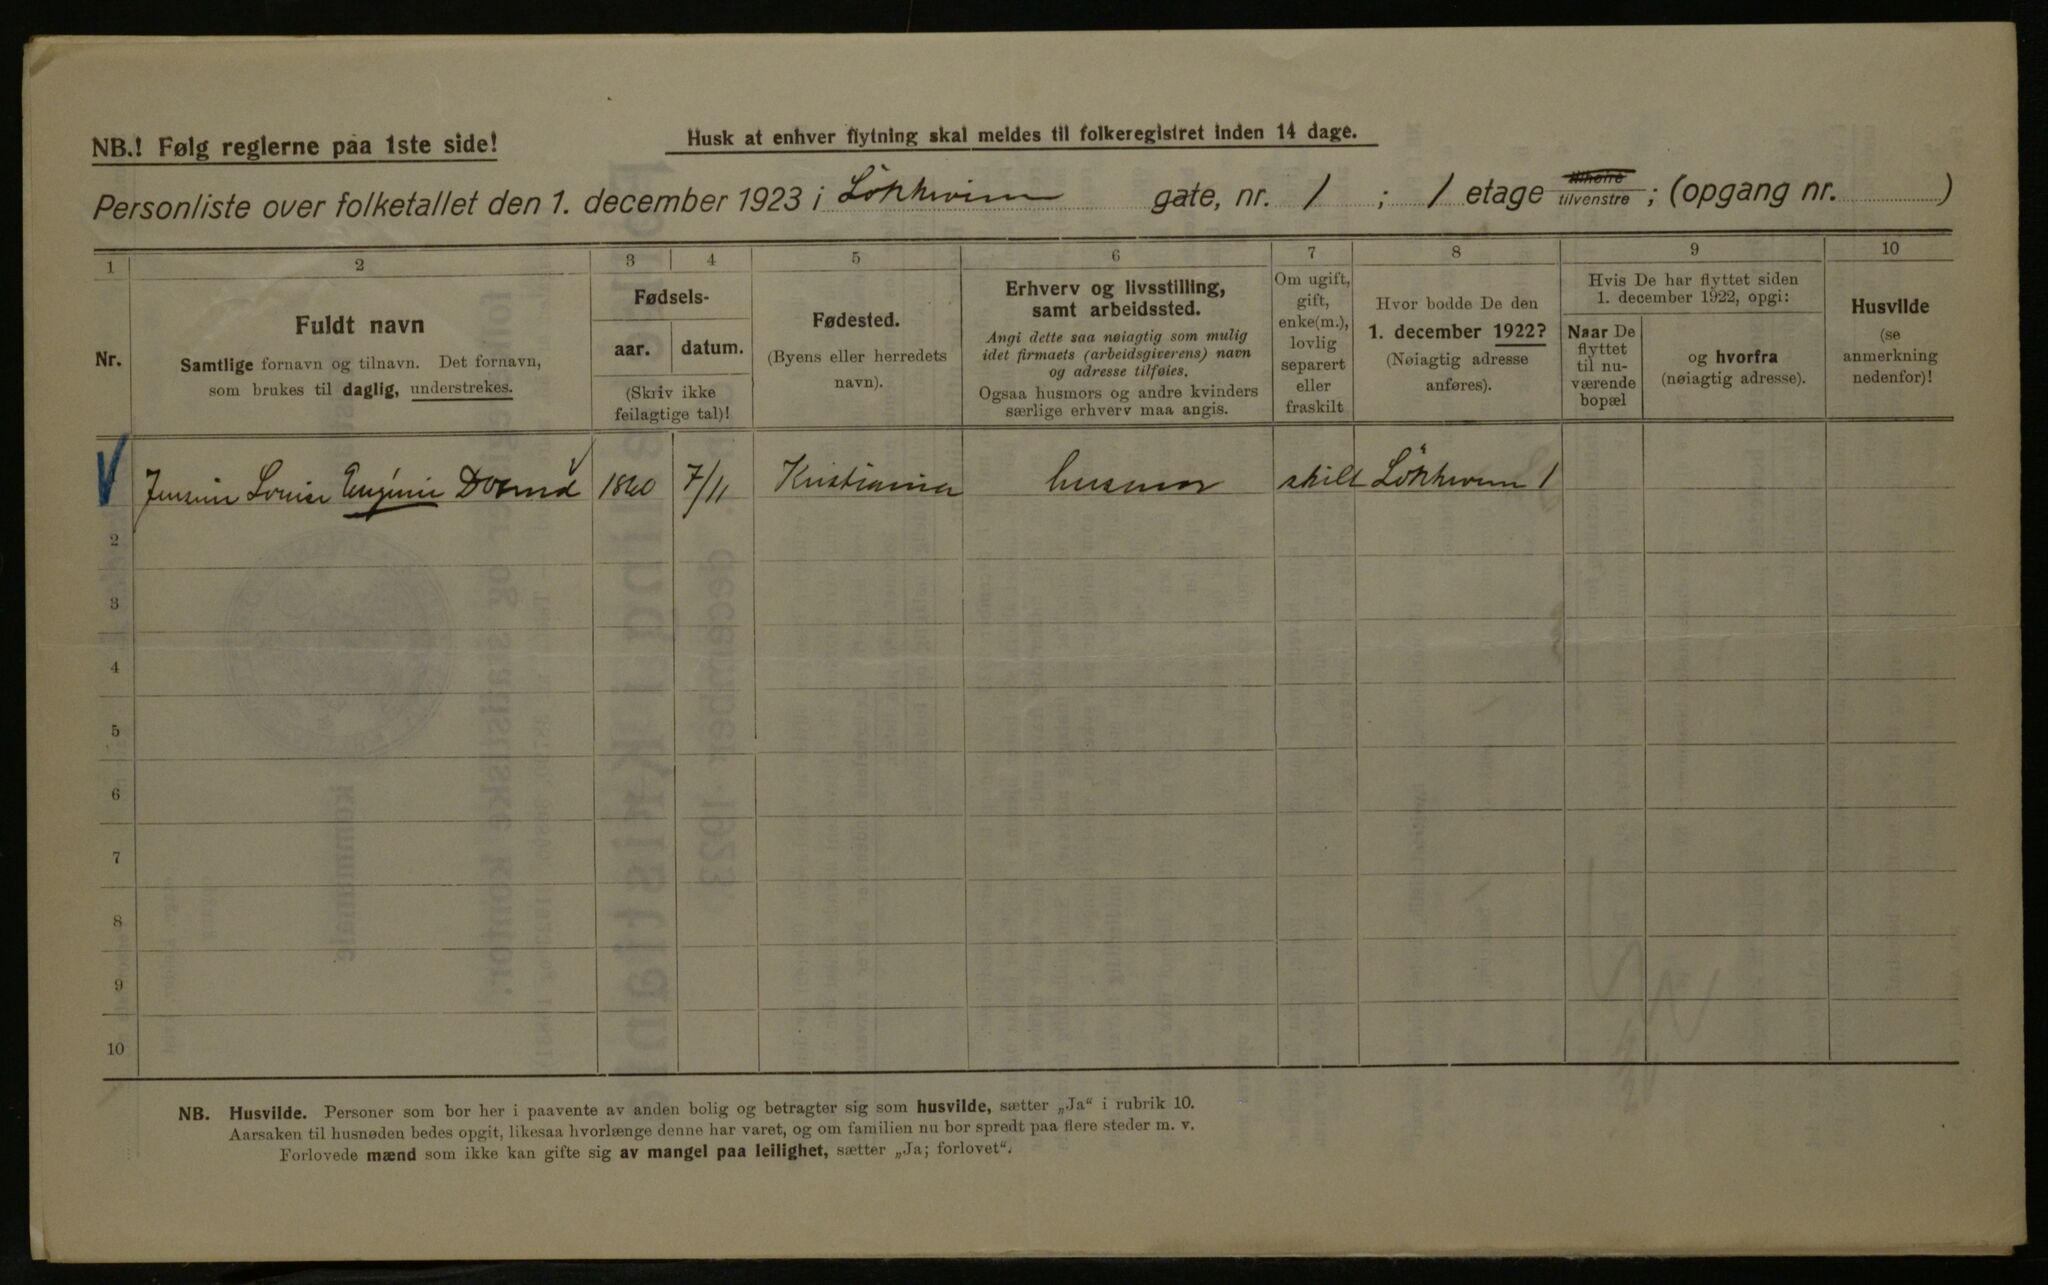 NB.! Følg reglerne paa 1ste side!
Husk at enhver flytning skal meldes til folkeregistret inden 14 dage.
Personliste over folketallet den 1. december 1923 i Løkkveien gate, nr. 1 ; 1 etage tilhøire tilvenstre ; (opgang nr. )
1 2 3 4 5 6 7 8 9 10
Nr.
Fuldt navn
Samtlige fornavn og tilnavn. Det fornavn,
som brukes til daglig, understrekes.
Fødsels-
aar. datum.
(Skriv ikke
feilagtige tal)!
Fødested.
(Byens eller herredets
navn).
Erhverv og livsstilling,
samt arbeidssted.
Angi dette saa nøiagtig som mulig
idet firmaets (arbeidsgiverens) navn
og adresse tilføies.
Ogsaa husmors og andre kvinders
særlige erhverv maa angis.
Om ugift,
gift,
enke(m.),
lovlig
separert
eller
fraskilt
Hvor bodde De den
1. december 1922?
(Nøiagtig adresse
anføres).
Hvis De har flyttet siden
1. december 1922, opgi:
Naar De
flyttet
til nu-
værende
bopæl
og hvorfra
(nøiagtig adresse).
Husvilde
(se
anmerkning
nedenfor)!
Louise Eugénie 1860 7/11 Kristiania husmor skilt Løkkveien 1
2
3
4
5
6
7
8
9
10
NB. Husvilde. Personer som bor her i paavente av anden bolig og betragter sig som husvilde, sætter „Ja“ i rubrik 10.
Aarsaken til husnøden bedes opgit, likesaa hvorlænge denne har varet, og om familien nu bor spredt paa flere steder m. v.
Forlovede mænd som ikke kan gifte sig av mangel paa leilighet, sætter „Ja; forlovet“.